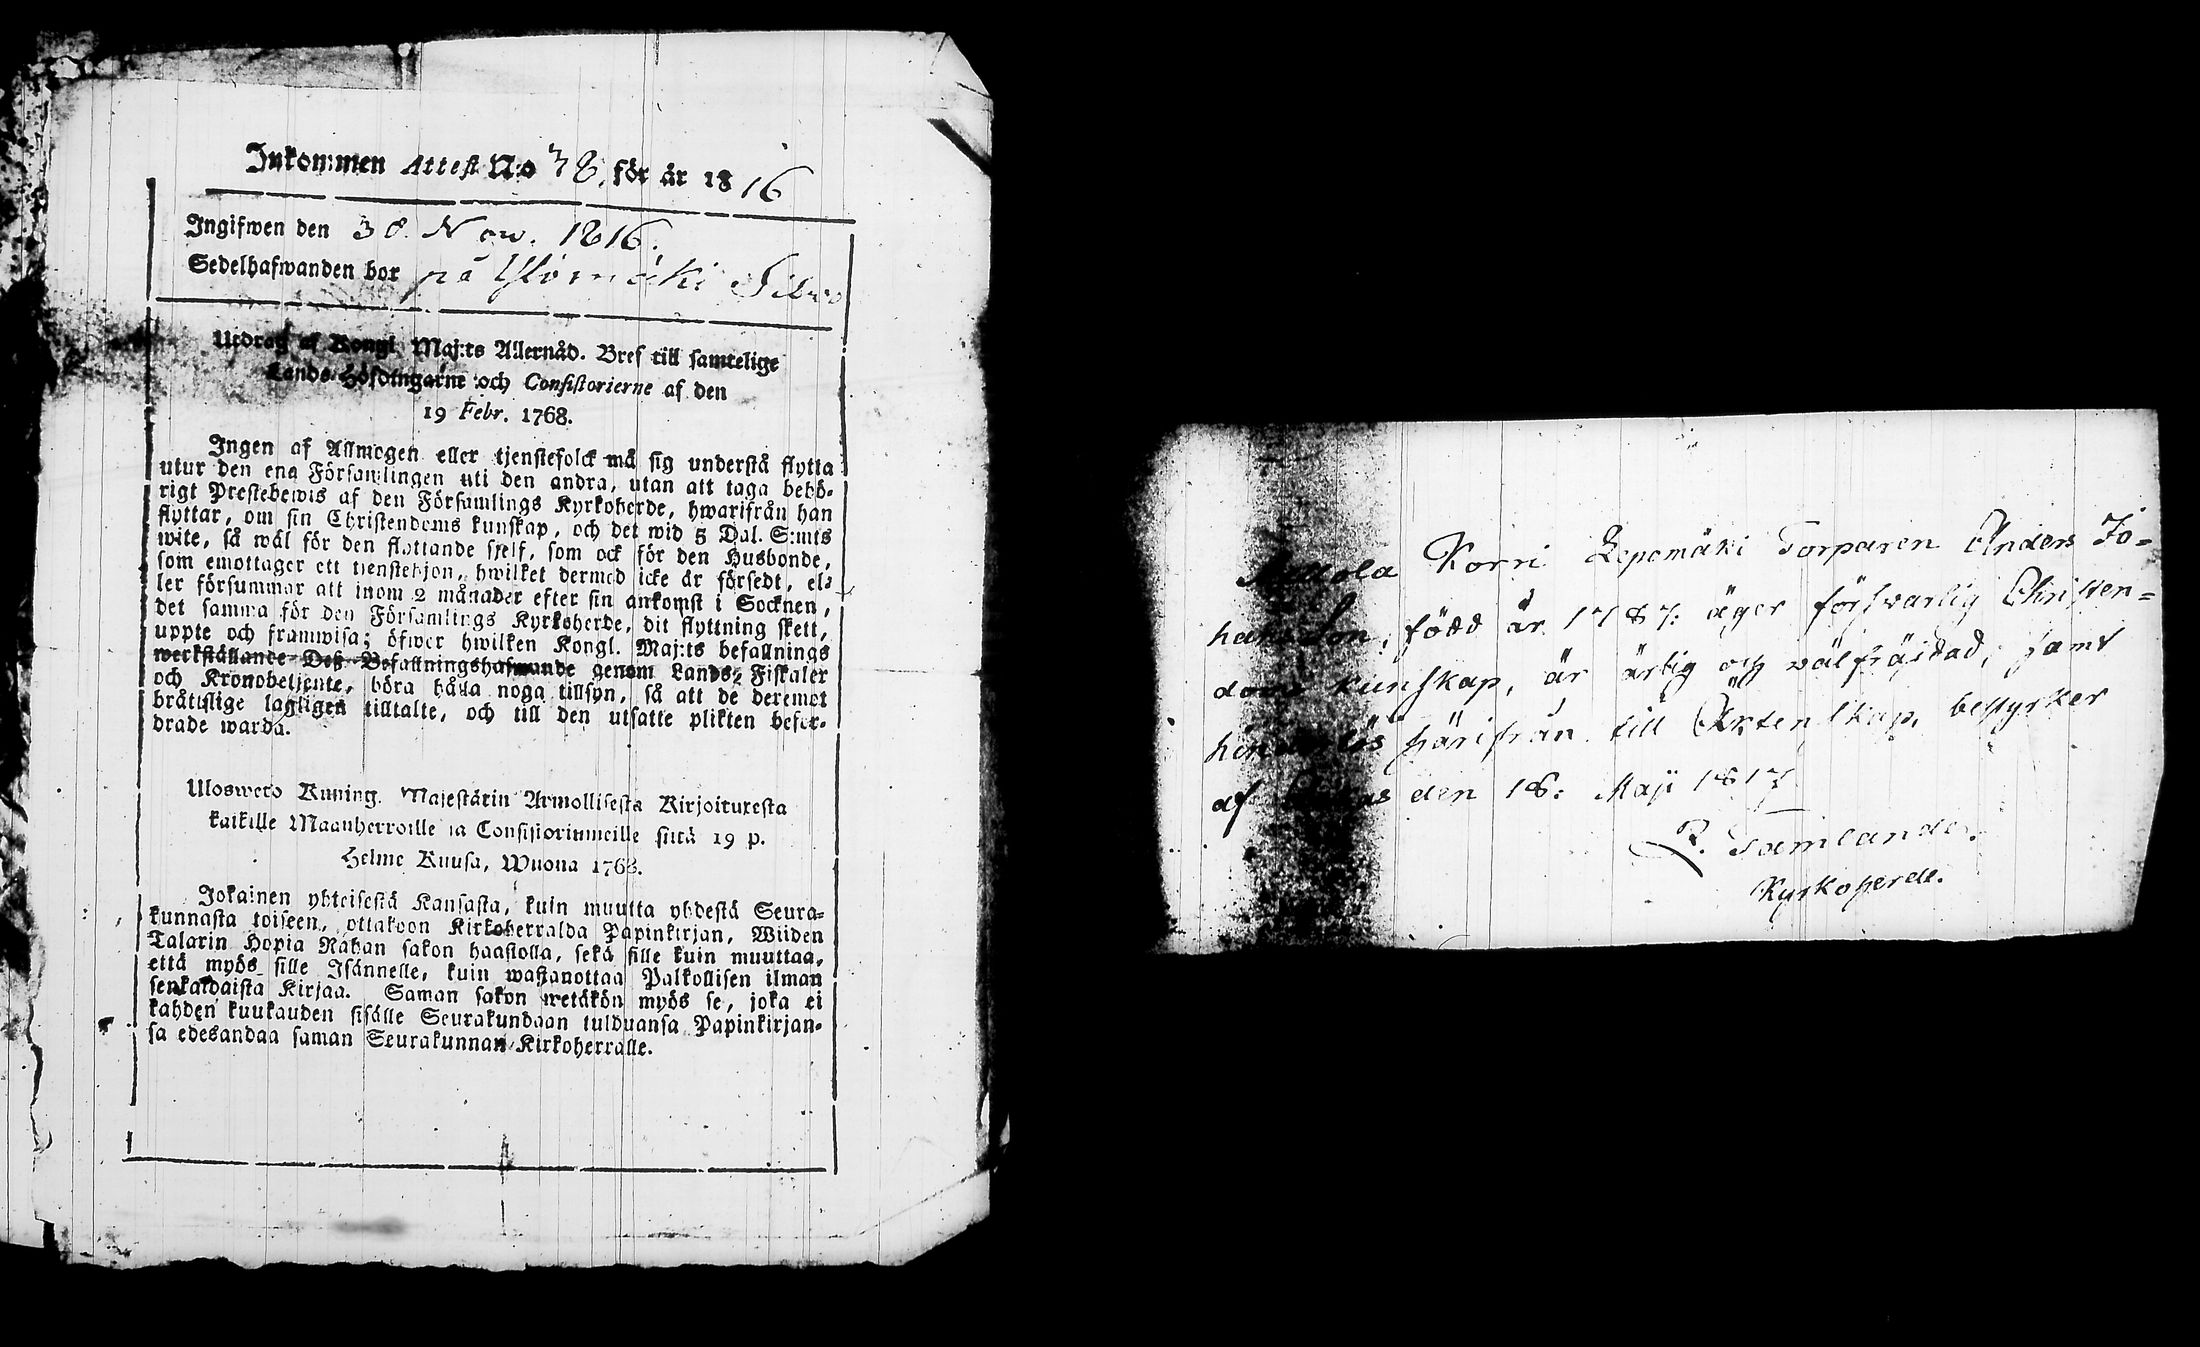 Inkommen Attest N:o 38, för år 1816
Ingifwen den 30 Nov. 1816.
Sedelhafwanden bor på Ylömäki
Utdrag af Kongl. Maj:ts Allernåd. Bref till samtelige
Lands-Höfdingarne och Consistorierne af den
19 Febr. 1768.
Ingen af Allmogen eller tjenstefolck må sig understå flytta
utur den ena Församlingen uti den andra, utan att taga behö-
rigt Prestebewis af den Församlings Kyrkoherde, hwarifrån han
flyttar, om sin Christendoms kunskap, och det wid 5 Dal. S:mts
wite, så wäl för den flyttande sjelf, som ock för den Husbonde,
som emottager ett tienstehjon, hwilket dermed icke är försedt, el-
ler försummar att inom 2 månader efter sin ankomst i Socknen,
det samma för den Församlings Kyrkoherde, dit flyttning skett,
uppte och framwisa; öfwer hwilken Kongl. Maj:ts befallnings
werkställande Deß Befallningshafwande genom Lands-Fiskaler
och Kronobetjente, böra hålla noga tillsyn, så att de deremot
bråttslige lagligen tilltalte, och till den utsatte plikten befor-
drade warda.
Ulosweto Kuning. Majestärin Armollisesta Kirjoituxesta
kaikille Maanherroille ja Consistoriumeille siitä 19 p.
Helme Kuusa, Wuona 1768.
Jokainen yhteisestä Kansasta, kuin muutta yhdestä Seura-
kunnasta toiseen, ottakoon Kirkoherralda Papinkirjan, Wiiden
Talarin Hopia Rahan sakon haastolla, sekä sille kuin muuttaa,
että myös sille Isännelle, kuin wastanottaa Palkollisen ilman
senkaldaista Kirjaa. Saman sakon wetäkön myös se, joka ei
kahden kuukauden sisälle Seurakundaan tulduansa Papinkirjan-
sa edesandaa saman Seurakunnan Kirkoherralle.
Korri Lepomäki Torparen Anders Jo-
hans Son, född år 1787: äger försvarlig Christen-
doms kunskap, är ärlig och välfräjdad, samt
hinderlös härifrån till Äktenskap, bestyrker
af den 18: Maji 1817
Kyrkoherde.